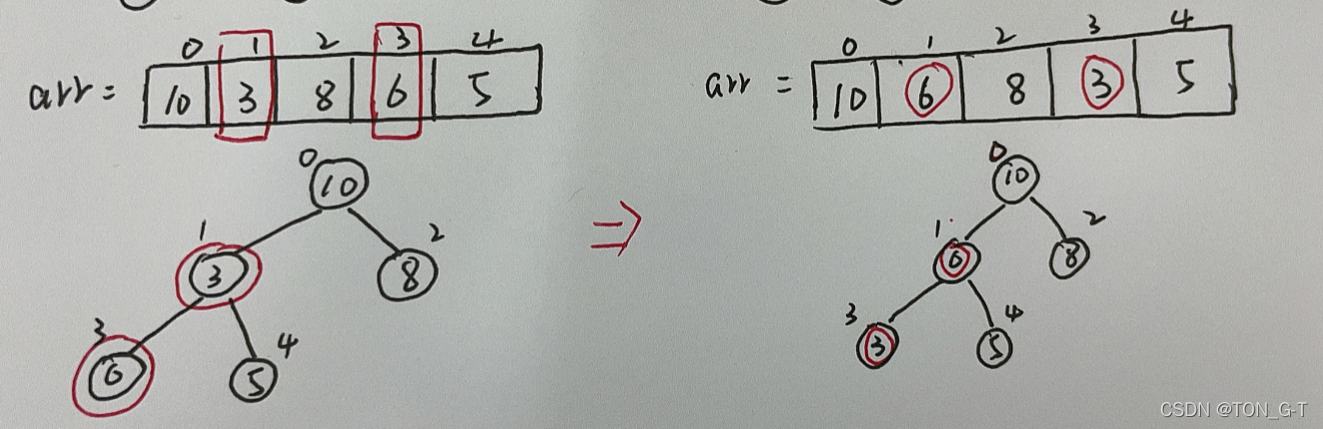 0 1 2 3 4
arr = 10 3 8 6 5
0
10
1 2
3 8
3 4
6 5
⇒
0 1 2 3 4
arr = 10 6 8 3 5
0
10
1 2
6 8
3 4
3 5
CSDN @TON_G-T